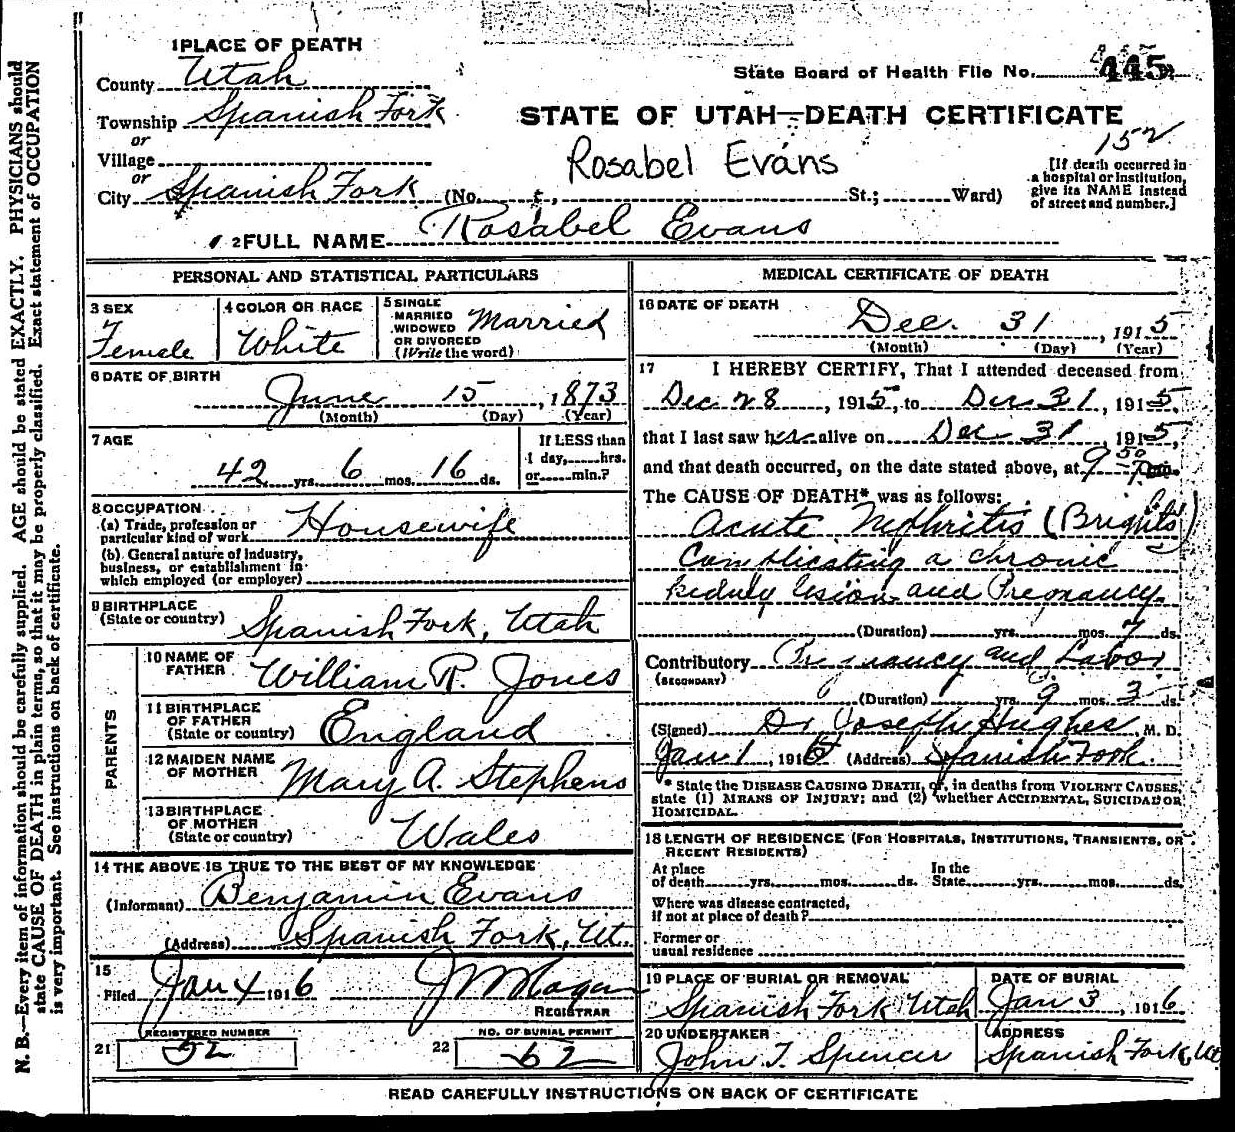 1 PLACE OF DEATH
County Utah
State Board of Health File No. 445
Township Spanish Fork
STATE OF UTAH—DEATH CERTIFICATE
or
152
Village
Rosabel Evans
[If death occurred in a hospital or institution, give its NAME instead of street and number.]
or
City Spanish Fork (No. , St.; Ward)
2 FULL NAME Rosabel Evans
PERSONAL AND STATISTICAL PARTICULARS
3 SEX Female
4 COLOR OR RACE White
5 SINGLE MARRIED WIDOWED OR DIVORCED (Write the word) Married
6 DATE OF BIRTH
June 15, 1873
(Month) (Day) (Year)
7 AGE
42 yrs. 6 mos. 16 ds.
If LESS than 1 day, hrs. or min.?
8 OCCUPATION
(a) Trade, profession or particular kind of work Housewife
(b) General nature of industry, business, or establishment in which employed (or employer)
9 BIRTHPLACE (State or country) Spanish Fork, Utah
PARENTS
10 NAME OF FATHER William R. Jones
11 BIRTHPLACE OF FATHER (State or country) England
12 MAIDEN NAME OF MOTHER Mary A. Stephens
13 BIRTHPLACE OF MOTHER (State or country) Wales
14 THE ABOVE IS TRUE TO THE BEST OF MY KNOWLEDGE
(Informant) Benjamin Evans
(Address) Spanish Fork, Ut.
15
Filed Jan 4 1916
REGISTRAR
21 REGISTERED NUMBER 52
22 NO. OF BURIAL PERMIT 62
MEDICAL CERTIFICATE OF DEATH
16 DATE OF DEATH
Dec. 31, 1915
(Month) (Day) (Year)
17 I HEREBY CERTIFY, That I attended deceased from
Dec 28, 1915, to Dec 31, 1915,
that I last saw her alive on Dec 31, 1915,
and that death occurred, on the date stated above, at 9 50 P.m.
The CAUSE OF DEATH* was as follows:
Acute Nephritis (Brights)
Complicating a chronic
kidney lesion and Pregnancy.
(Duration) yrs. mos. 7 ds.
Contributory Pregnancy and Labor
(SECONDARY)
(Duration) yrs. 9 mos. 3 ds.
(Signed) Dr Joseph Hughes, M. D.
Jan 1, 1916 (Address) Spanish Fork.
* State the DISEASE CAUSING DEATH, or, in deaths from VIOLENT CAUSES,
state (1) MEANS OF INJURY; and (2) whether ACCIDENTAL, SUICIDAL OR
HOMICIDAL.
18 LENGTH OF RESIDENCE (FOR HOSPITALS, INSTITUTIONS, TRANSIENTS, OR
RECENT RESIDENTS)
At place of death yrs. mos. ds. In the State yrs. mos. ds.
Where was disease contracted,
if not at place of death?
Former or
usual residence
19 PLACE OF BURIAL OR REMOVAL Spanish Fork Utah
DATE OF BURIAL Jan 3, 1916
20 UNDERTAKER John T. Spencer
ADDRESS Spanish Fork, Ut
READ CAREFULLY INSTRUCTIONS ON BACK OF CERTIFICATE
N. B.—Every item of information should be carefully supplied. AGE should be stated EXACTLY. PHYSICIANS should
state CAUSE OF DEATH in plain terms, so that it may be properly classified. Exact statement of OCCUPATION
is very important. See instructions on back of certificate.